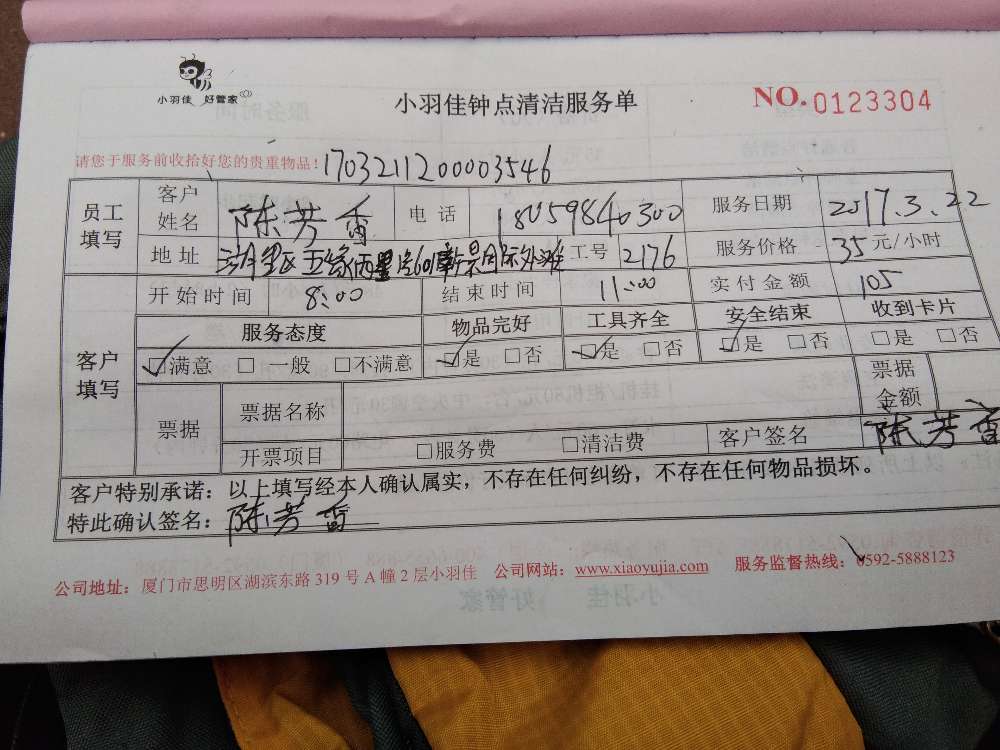 小羽佳 好管家
小羽佳钟点清洁服务单
NO. 0123304
请您于服务前收拾好您的贵重物品! 1703211200003546
员工填写 客户姓名 陈芳香 电话 18059840300 服务日期 2017.3.22
地址 湖里区五缘西星 国际外滩 工号 2176 服务价格 35元/小时
客户填写 开始时间 8:00 结束时间 11:00 实付金额 105
服务态度 物品完好 工具齐全 安全结束 收到卡片
☑满意 □一般 □不满意 ☑是 □否 ☑是 □否 ☑是 □否 □是 □否
票据 票据名称 票据金额
开票项目 □服务费 □清洁费 客户签名 陈芳香
客户特别承诺：以上填写经本人确认属实，不存在任何纠纷，不存在任何物品损坏。
特此确认签名：陈芳香
公司地址：厦门市思明区湖滨东路 319 号 A 幢 2 层小羽佳 公司网站：www.xiaoyujia.com 服务监督热线：0592-5888123